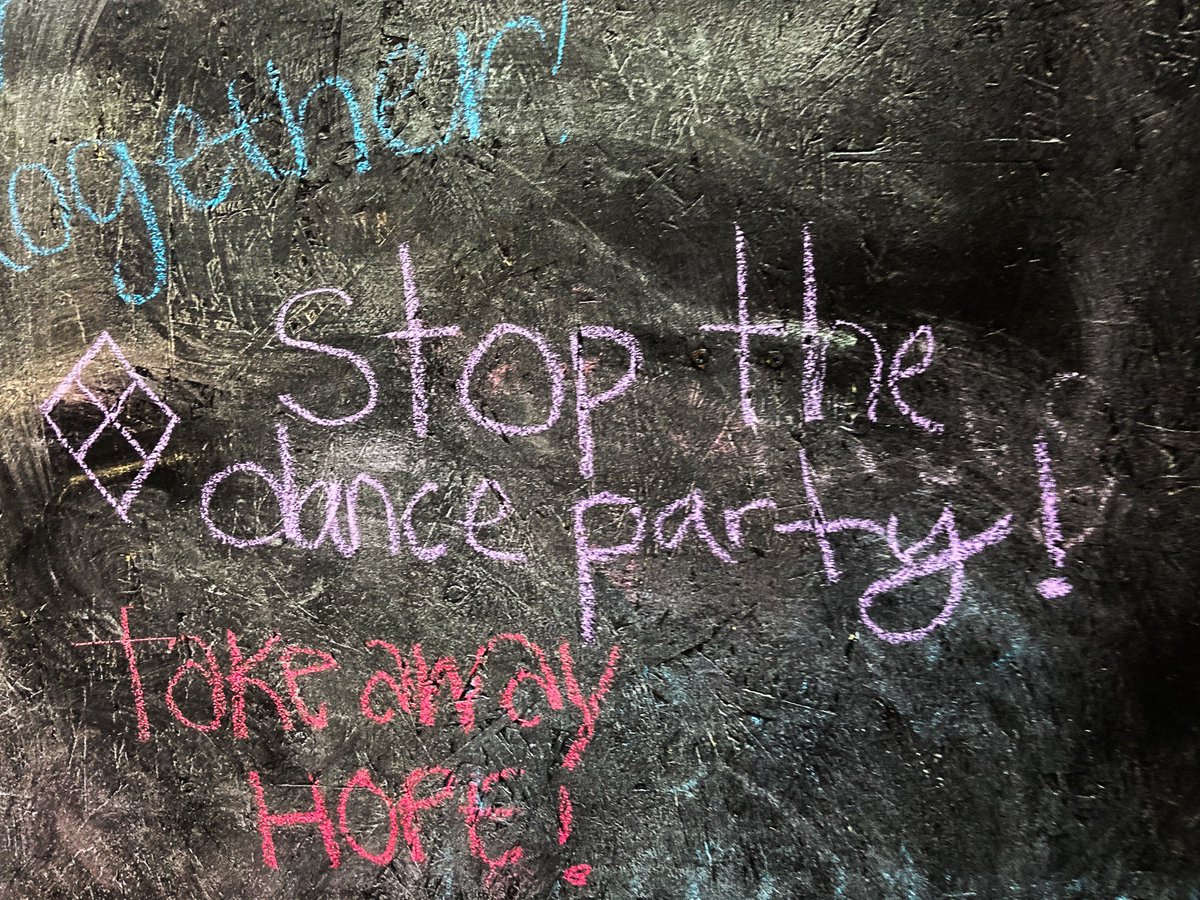 together!
Stop the
dance party!
take away
HOPE!